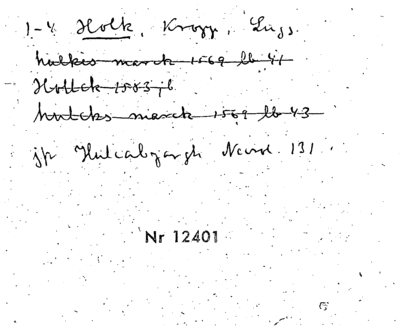 1-4 Holk, Kropp, Lugs.
hulkis marck 1569 lb 41
Hollck 1583 jb
hulcks marck 1569 lb 43
jfr Hulcabjargh Neovd. 131.
Nr 12401